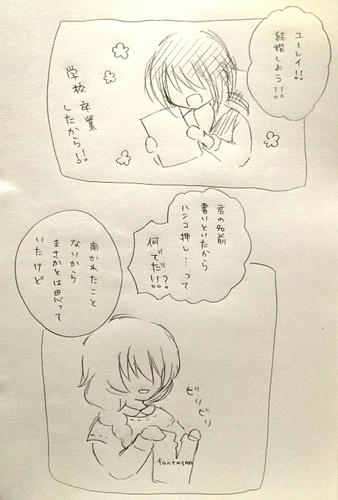 ユーレイ!!
結婚しよう!!
学校卒業
したから!!
君の名前
書いといたから
ハンコ押し…って
何でだ!?!!
聞かれたこと
ないから
まさかとは思って
いたけど
ビリビリ